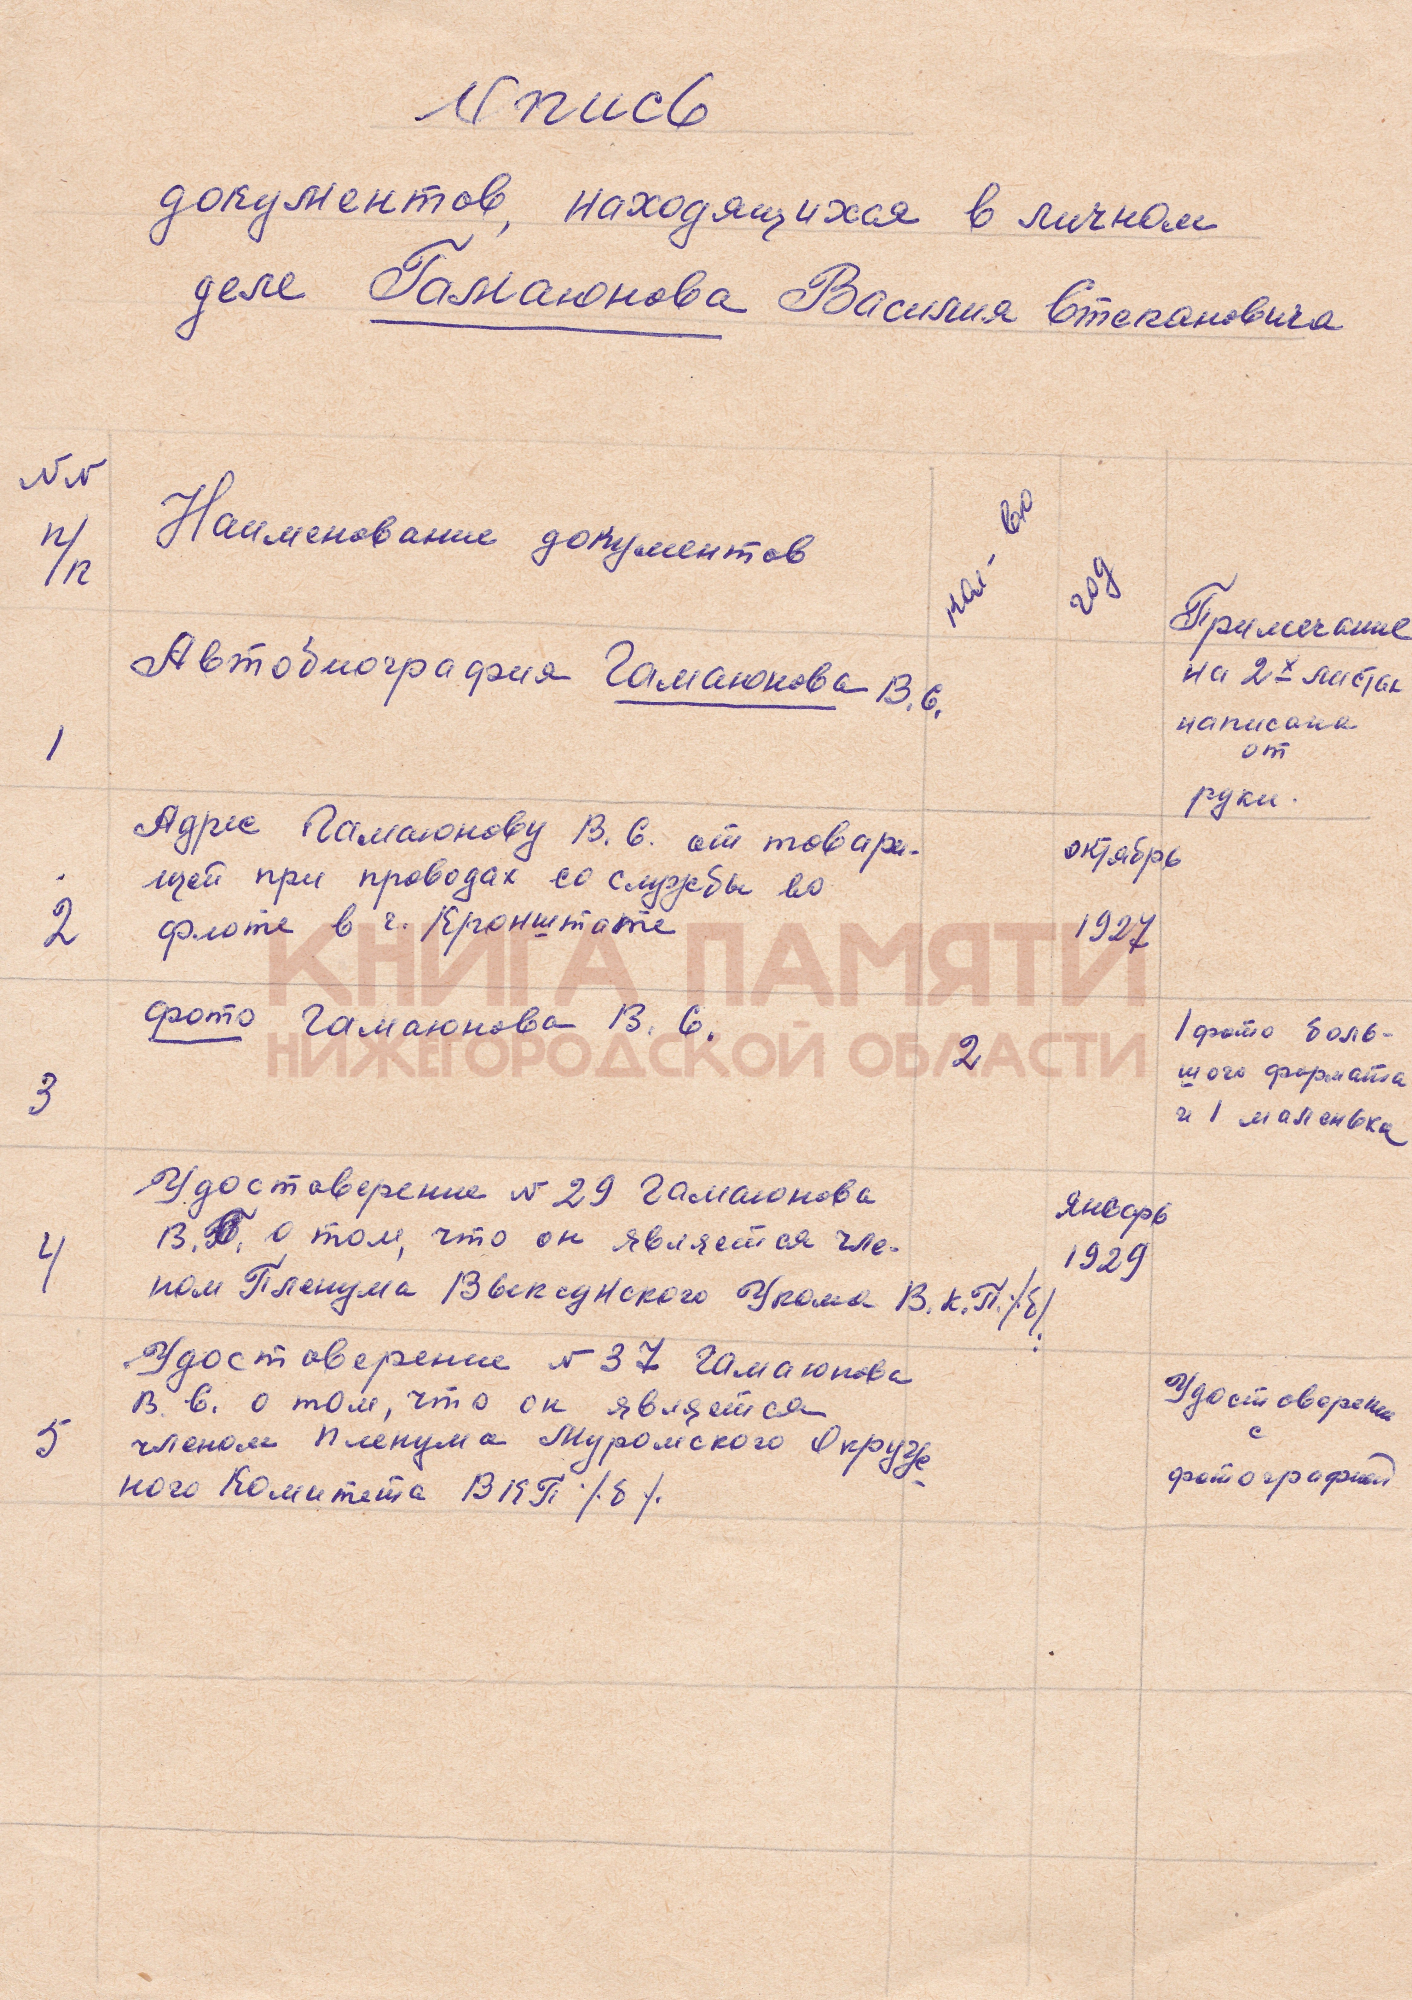 Опись
документов, находящихся в личном
деле Гамаюнова Василия Степановича
NN
п/п
Наименование документов
кол-во
год
Примечание
1
Автобиография Гамаюнова В.С.
на 2х листах
написана
от
руки.
2
Адрес Гамаюнову В.С. от товари-
щей при проводах со службы во
флоте в г. Кронштате
октябрь
1927
3
фото Гамаюнова В.С.
2
1 фото боль-
шого формата
и 1 маленька
4
Удостоверение N 29 Гамаюнова
В.С. о том, что он является чле-
ном Пленума Выксунского Укома В.К.П./.б/.
январь
1929
5
Удостоверение N 37 Гамаюнова
В.С. о том, что он является
членом пленума Муромского Окруж-
ного Комитета ВКП./.б/.
Удостоверение
с
фотографией
КНИГА ПАМЯТИ
НИЖЕГОРОДСКОЙ ОБЛАСТИ